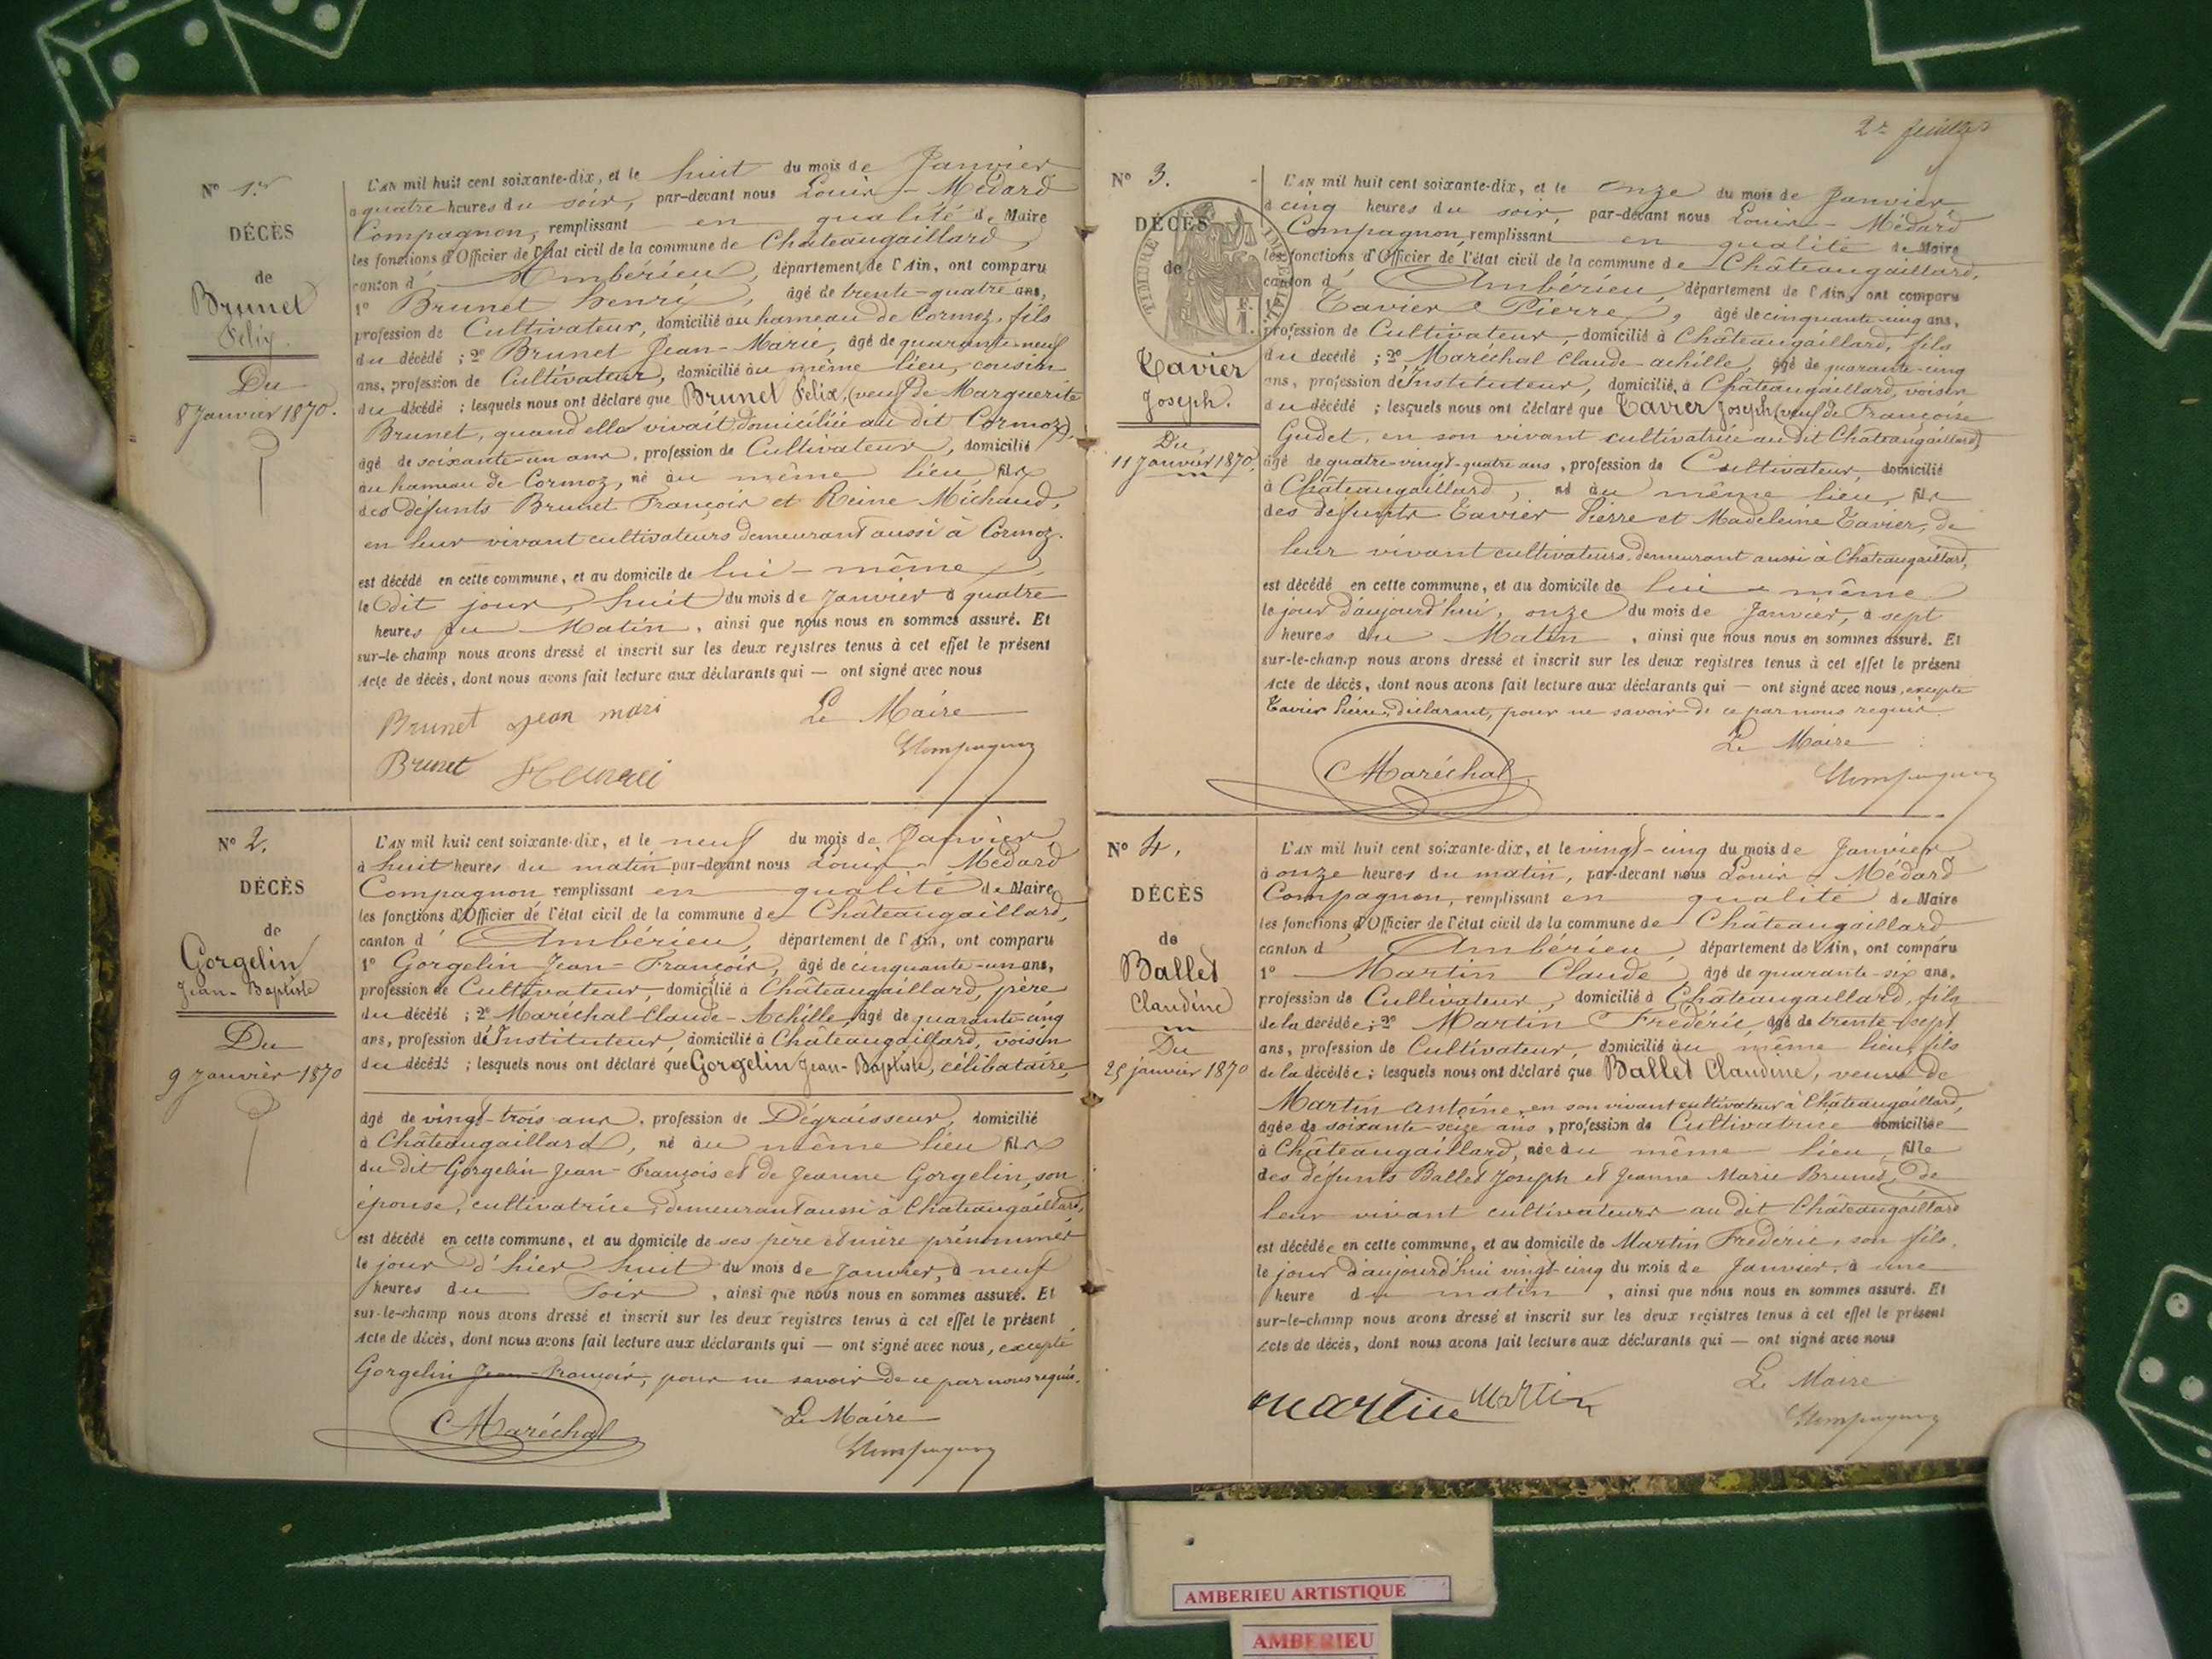 N° 1er
DÉCÈS
de
Brunet
Félix.
Du
8 Janvier 1870.
L'AN mil huit cent soixante-dix, et le huit du mois de Janvier
à quatre heures du soir, par-devant nous Louis-Médard
Compagnon, remplissant en qualité de Maire
les fonctions d'Officier de l'état civil de la commune de Châteaugaillard,
canton d'Ambérieu, département de l'Ain, ont comparu
1° Brunet Henri, âgé de trente-quatre ans,
profession de Cultivateur, domicilié au hameau de Cormoz, fils
du décédé ; 2° Brunet Jean-Marie, âgé de quarante-neuf
ans, profession de Cultivateur, domicilié au même lieu, cousin
du décédé ; lesquels nous ont déclaré que Brunet Félix, (veuf de Marguerite
Brunet, quand elle vivait domiciliée au dit Cormoz),
âgé de soixante-un ans, profession de Cultivateur, domicilié
au hameau de Cormoz, né au même lieu, fils
des défunts Brunet François et Reine Michaud,
en leur vivant cultivateurs demeurant aussi à Cormoz.
est décédé en cette commune, et au domicile de lui-même
le dit jour, huit du mois de Janvier à quatre
heures du Matin, ainsi que nous nous en sommes assuré. Et
sur-le-champ nous avons dressé et inscrit sur les deux registres tenus à cet effet le présent
Acte de décès, dont nous avons fait lecture aux déclarants qui — ont signé avec nous
Brunet jean mari
Le Maire
Brunet
Compagnon
N° 2.
DÉCÈS
de
Gorgelin
Jean-Baptiste
Du
9 Janvier 1870
L'AN mil huit cent soixante-dix, et le neuf du mois de Janvier
à huit heures du matin par-devant nous Louis-Médard
Compagnon remplissant en qualité de Maire
les fonctions d'Officier de l'état civil de la commune de Châteaugaillard,
canton d'Ambérieu, département de l'Ain, ont comparu
1° Gorgelin Jean-François, âgé de cinquante-un ans,
profession de Cultivateur, domicilié à Châteaugaillard, père
du décédé ; 2° Maréchal Claude-Achille, âgé de quarante-cinq
ans, profession d'Instituteur, domicilié à Châteaugaillard, voisin
du décédé ; lesquels nous ont déclaré que Gorgelin Jean-Baptiste, célibataire,
âgé de vingt-trois ans, profession de Dégraisseur, domicilié
à Châteaugaillard, né au même lieu fils
du dit Gorgelin Jean-François et de Jeanne Gorgelin, son
épouse, cultivatrice, demeurant aussi à Châteaugaillard,
est décédé en cette commune, et au domicile de ses père et mère prénommés
le jour d'hier huit du mois de Janvier, à neuf
heures du Soir, ainsi que nous nous en sommes assuré. Et
sur-le-champ nous avons dressé et inscrit sur les deux registres tenus à cet effet le présent
Acte de décès, dont nous avons fait lecture aux déclarants qui — ont signé avec nous, excepté
Gorgelin Jean-François, pour ne savoir de ce par nous requis.
Maréchal
Le Maire
Compagnon
N° 3.
DÉCÈS
de
TIMBRE IMPÉRIAL
Tavier
Joseph.
Du
11 Janvier 1870.
L'AN mil huit cent soixante-dix, et le onze du mois de Janvier
à cinq heures du soir, par-devant nous Louis-Médard
Compagnon, remplissant en qualité de Maire
les fonctions d'Officier de l'état civil de la commune de Châteaugaillard,
canton d'Ambérieu, département de l'Ain, ont comparu
Tavier Pierre, âgé de cinquante-cinq ans,
profession de Cultivateur, domicilié à Châteaugaillard, fils
du décédé ; 2° Maréchal Claude-achille, âgé de quarante-cinq
ans, profession d'Instituteur, domicilié à Châteaugaillard, voisin
du décédé ; lesquels nous ont déclaré que Tavier Joseph (veuf de Françoise
Gudet, en son vivant cultivatrice au dit Châteaugaillard)
âgé de quatre-vingt-quatre ans, profession de Cultivateur, domicilié
à Châteaugaillard, né au même lieu, fils
des défunts Tavier Pierre et Madeleine Tavier, de
leur vivant cultivateurs demeurant aussi à Châteaugaillard,
est décédé en cette commune, et au domicile de lui-même
le jour d'aujourd'hui, onze du mois de Janvier, à sept
heures du Matin, ainsi que nous nous en sommes assuré. Et
sur-le-champ nous avons dressé et inscrit sur les deux registres tenus à cet effet le présent
Acte de décès, dont nous avons fait lecture aux déclarants qui — ont signé avec nous, excepté
Tavier Pierre, déclarant, pour ne savoir de ce par nous requis.
Le Maire
Maréchal
Compagnon
N° 4.
DÉCÈS
de
Ballet
Claudine
Du
25 janvier 1870
L'AN mil huit cent soixante-dix, et le vingt-cinq du mois de Janvier
à onze heures du matin, par-devant nous Louis-Médard
Compagnon, remplissant en qualité de Maire
les fonctions d'Officier de l'état civil de la commune de Châteaugaillard
canton d'Ambérieu, département de l'Ain, ont comparu
1° Martin Claude, âgé de quarante-six ans,
profession de Cultivateur, domicilié à Châteaugaillard, fils
de la décédée ; 2° Martin Frédéric, âgé de trente-sept
ans, profession de Cultivateur, domicilié au même lieu, fils
de la décédée ; lesquels nous ont déclaré que Ballet Claudine, veuve de
Martin Antoine, en son vivant cultivateur à Châteaugaillard,
âgée de soixante-seize ans, profession de Cultivatrice domiciliée
à Châteaugaillard, née au même lieu, fille
des défunts Ballet Joseph et Jeanne Marie Brunet, de
leur vivant cultivateurs au dit Châteaugaillard
est décédée en cette commune, et au domicile de Martin Frédéric, son fils,
le jour d'aujourd'hui vingt-cinq du mois de Janvier, à une
heure du matin, ainsi que nous nous en sommes assuré. Et
sur-le-champ nous avons dressé et inscrit sur les deux registres tenus à cet effet le présent
Acte de décès, dont nous avons fait lecture aux déclarants qui — ont signé avec nous
Le Maire
martin Martin
Compagnon
AMBERIEU ARTISTIQUE
AMBERIEU